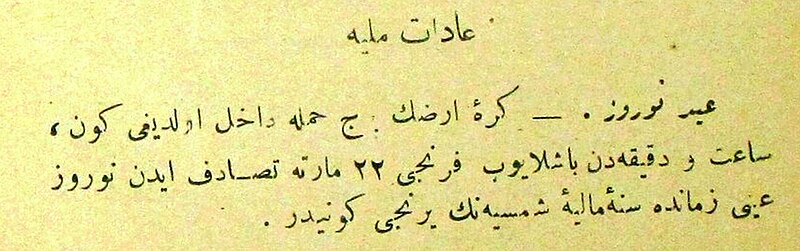 عادات مليه
عيد نوروز . — كرهٔ ارضك برج حمله داخل اولديغى كون ،
ساعت و دقيقه‌دن باشلايوب فرنجى ٢٢ مارته تصادف ايدن نوروز
عينى زمانده سنهٔ ماليهٔ شمسيه‌نك برنجى كونيدر .